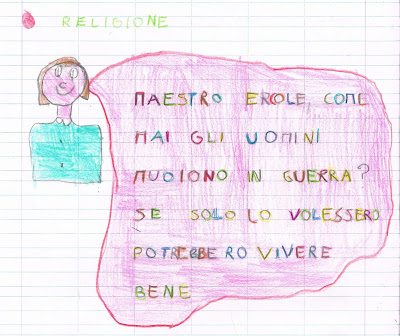 RELIGIONE
MAESTRO ERCOLE, COME
MAI GLI UOMINI
MUOIONO IN GUERRA?
SE SOLO LO VOLESSERO
POTREBBERO VIVERE
BENE